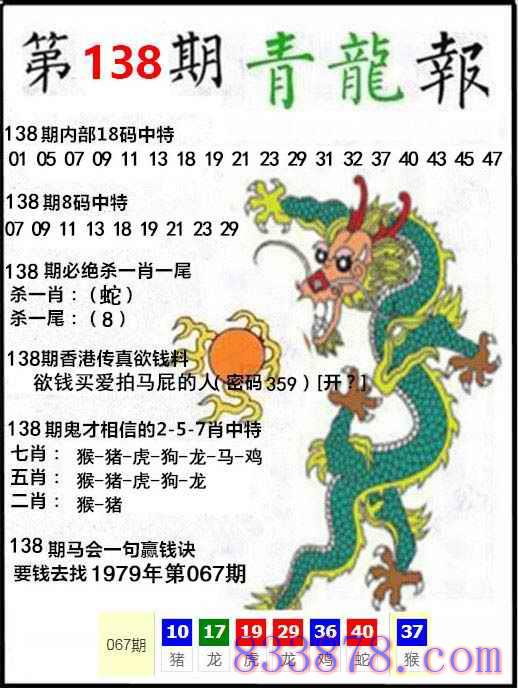 第138期青龍報
138期内部18码中特
01 05 07 09 11 13 18 19 21 23 29 31 32 37 40 43 45 47
138期8码中特
07 09 11 13 18 19 21 23 29
138期必绝杀一肖一尾
杀一肖：（蛇）
杀一尾：（8）
138期香港传真欲钱料
欲钱买爱拍马屁的人（密码359）[开？]
138期鬼才相信的2-5-7肖中特
七肖： 猴-猪-虎-狗-龙-马-鸡
五肖： 猴-猪-虎-狗-龙
二肖： 猴-猪
138期马会一句赢钱诀
要钱去找1979年第067期
067期 10 17 19 29 36 40 37
猪 龙 虎 龙 鸡 蛇 猴
833878.com